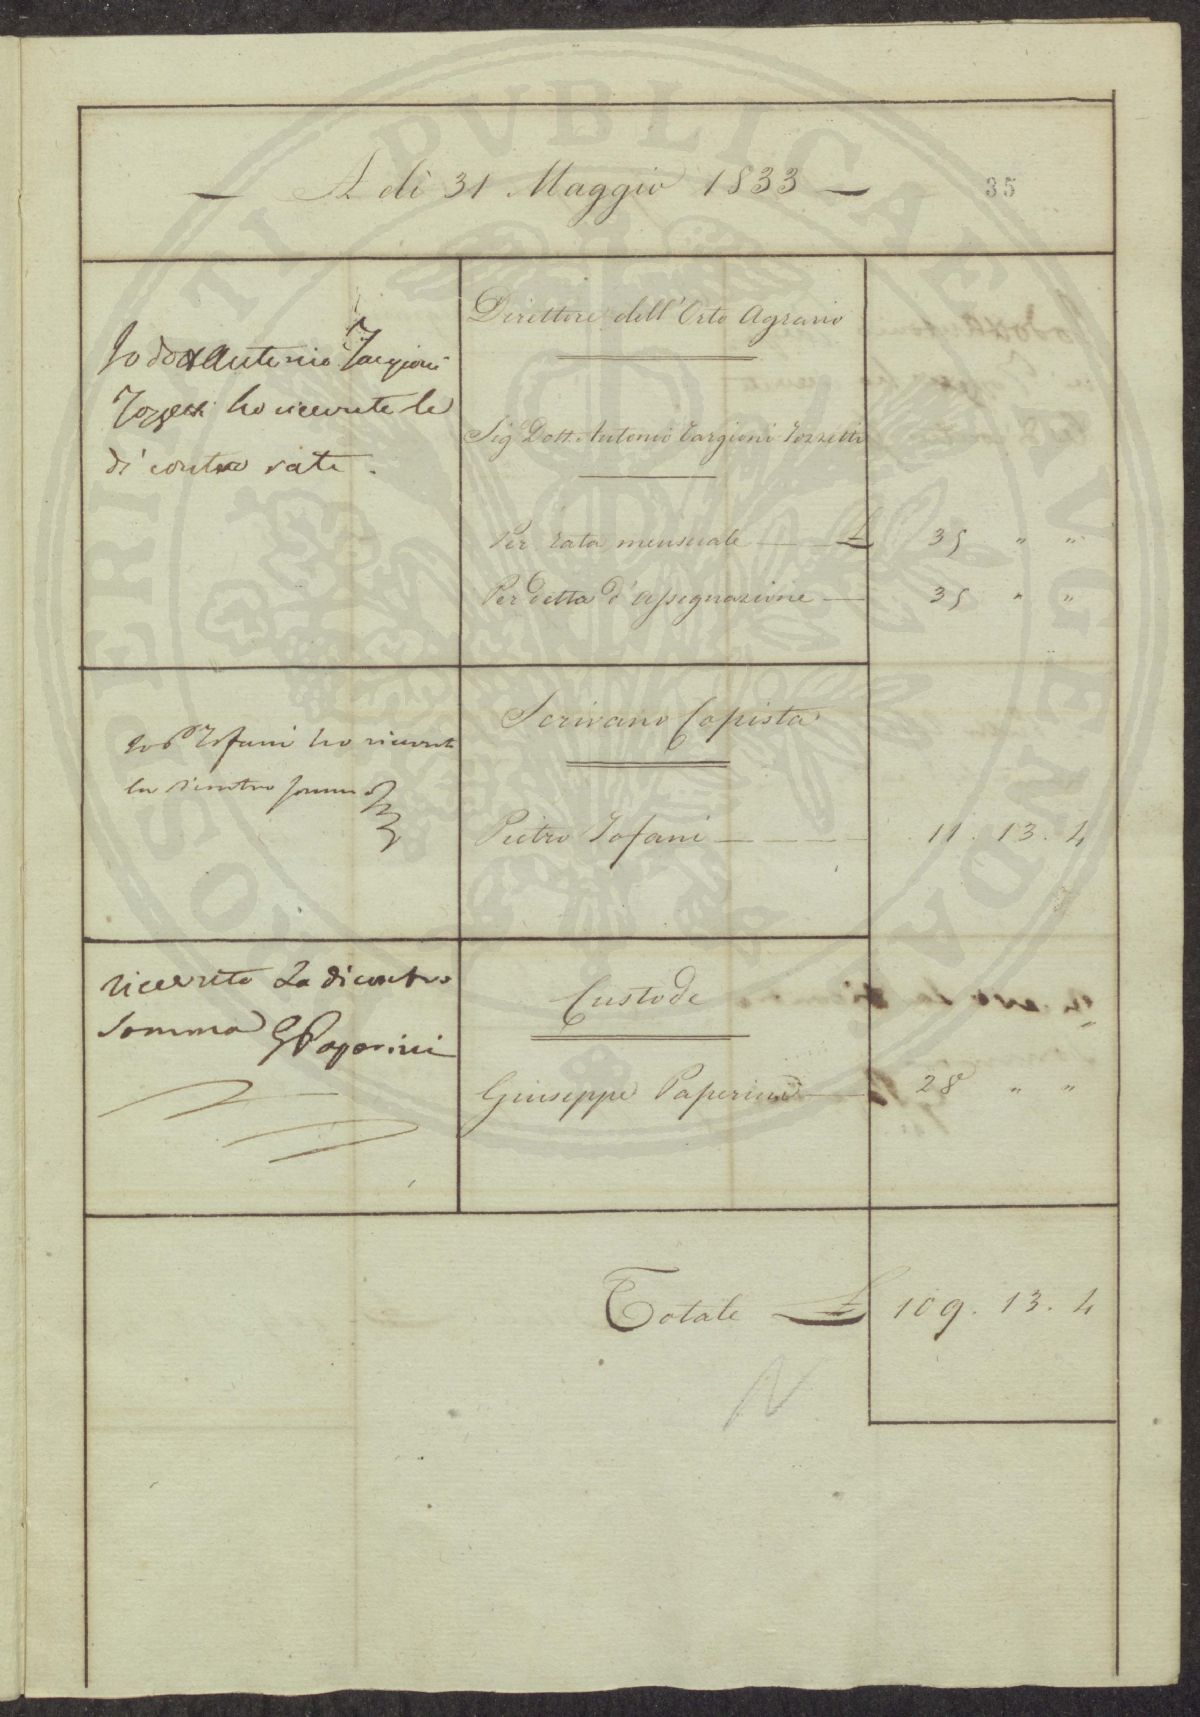 A dì 31 Maggio 1833
35
Io dott Antonio Targioni
Tozzetti ho ricevute le
di contro rate.
Direttore dell'Orto Agrario
Sig.r Dott. Antonio Targioni Tozzetti
Per rata mensuale £ 35 " "
Per detta d'assegnazione 35 " "
Io P Tofani ho ricevuto
la dicontro somma
Scrivano Copista
Pietro Tofani 11. 13. 4
ricevuto La dicontro
Somma G Paperini
Custode
Giuseppe Paperini 28 " "
Totale £ 109. 13. 4
PVBLICAE